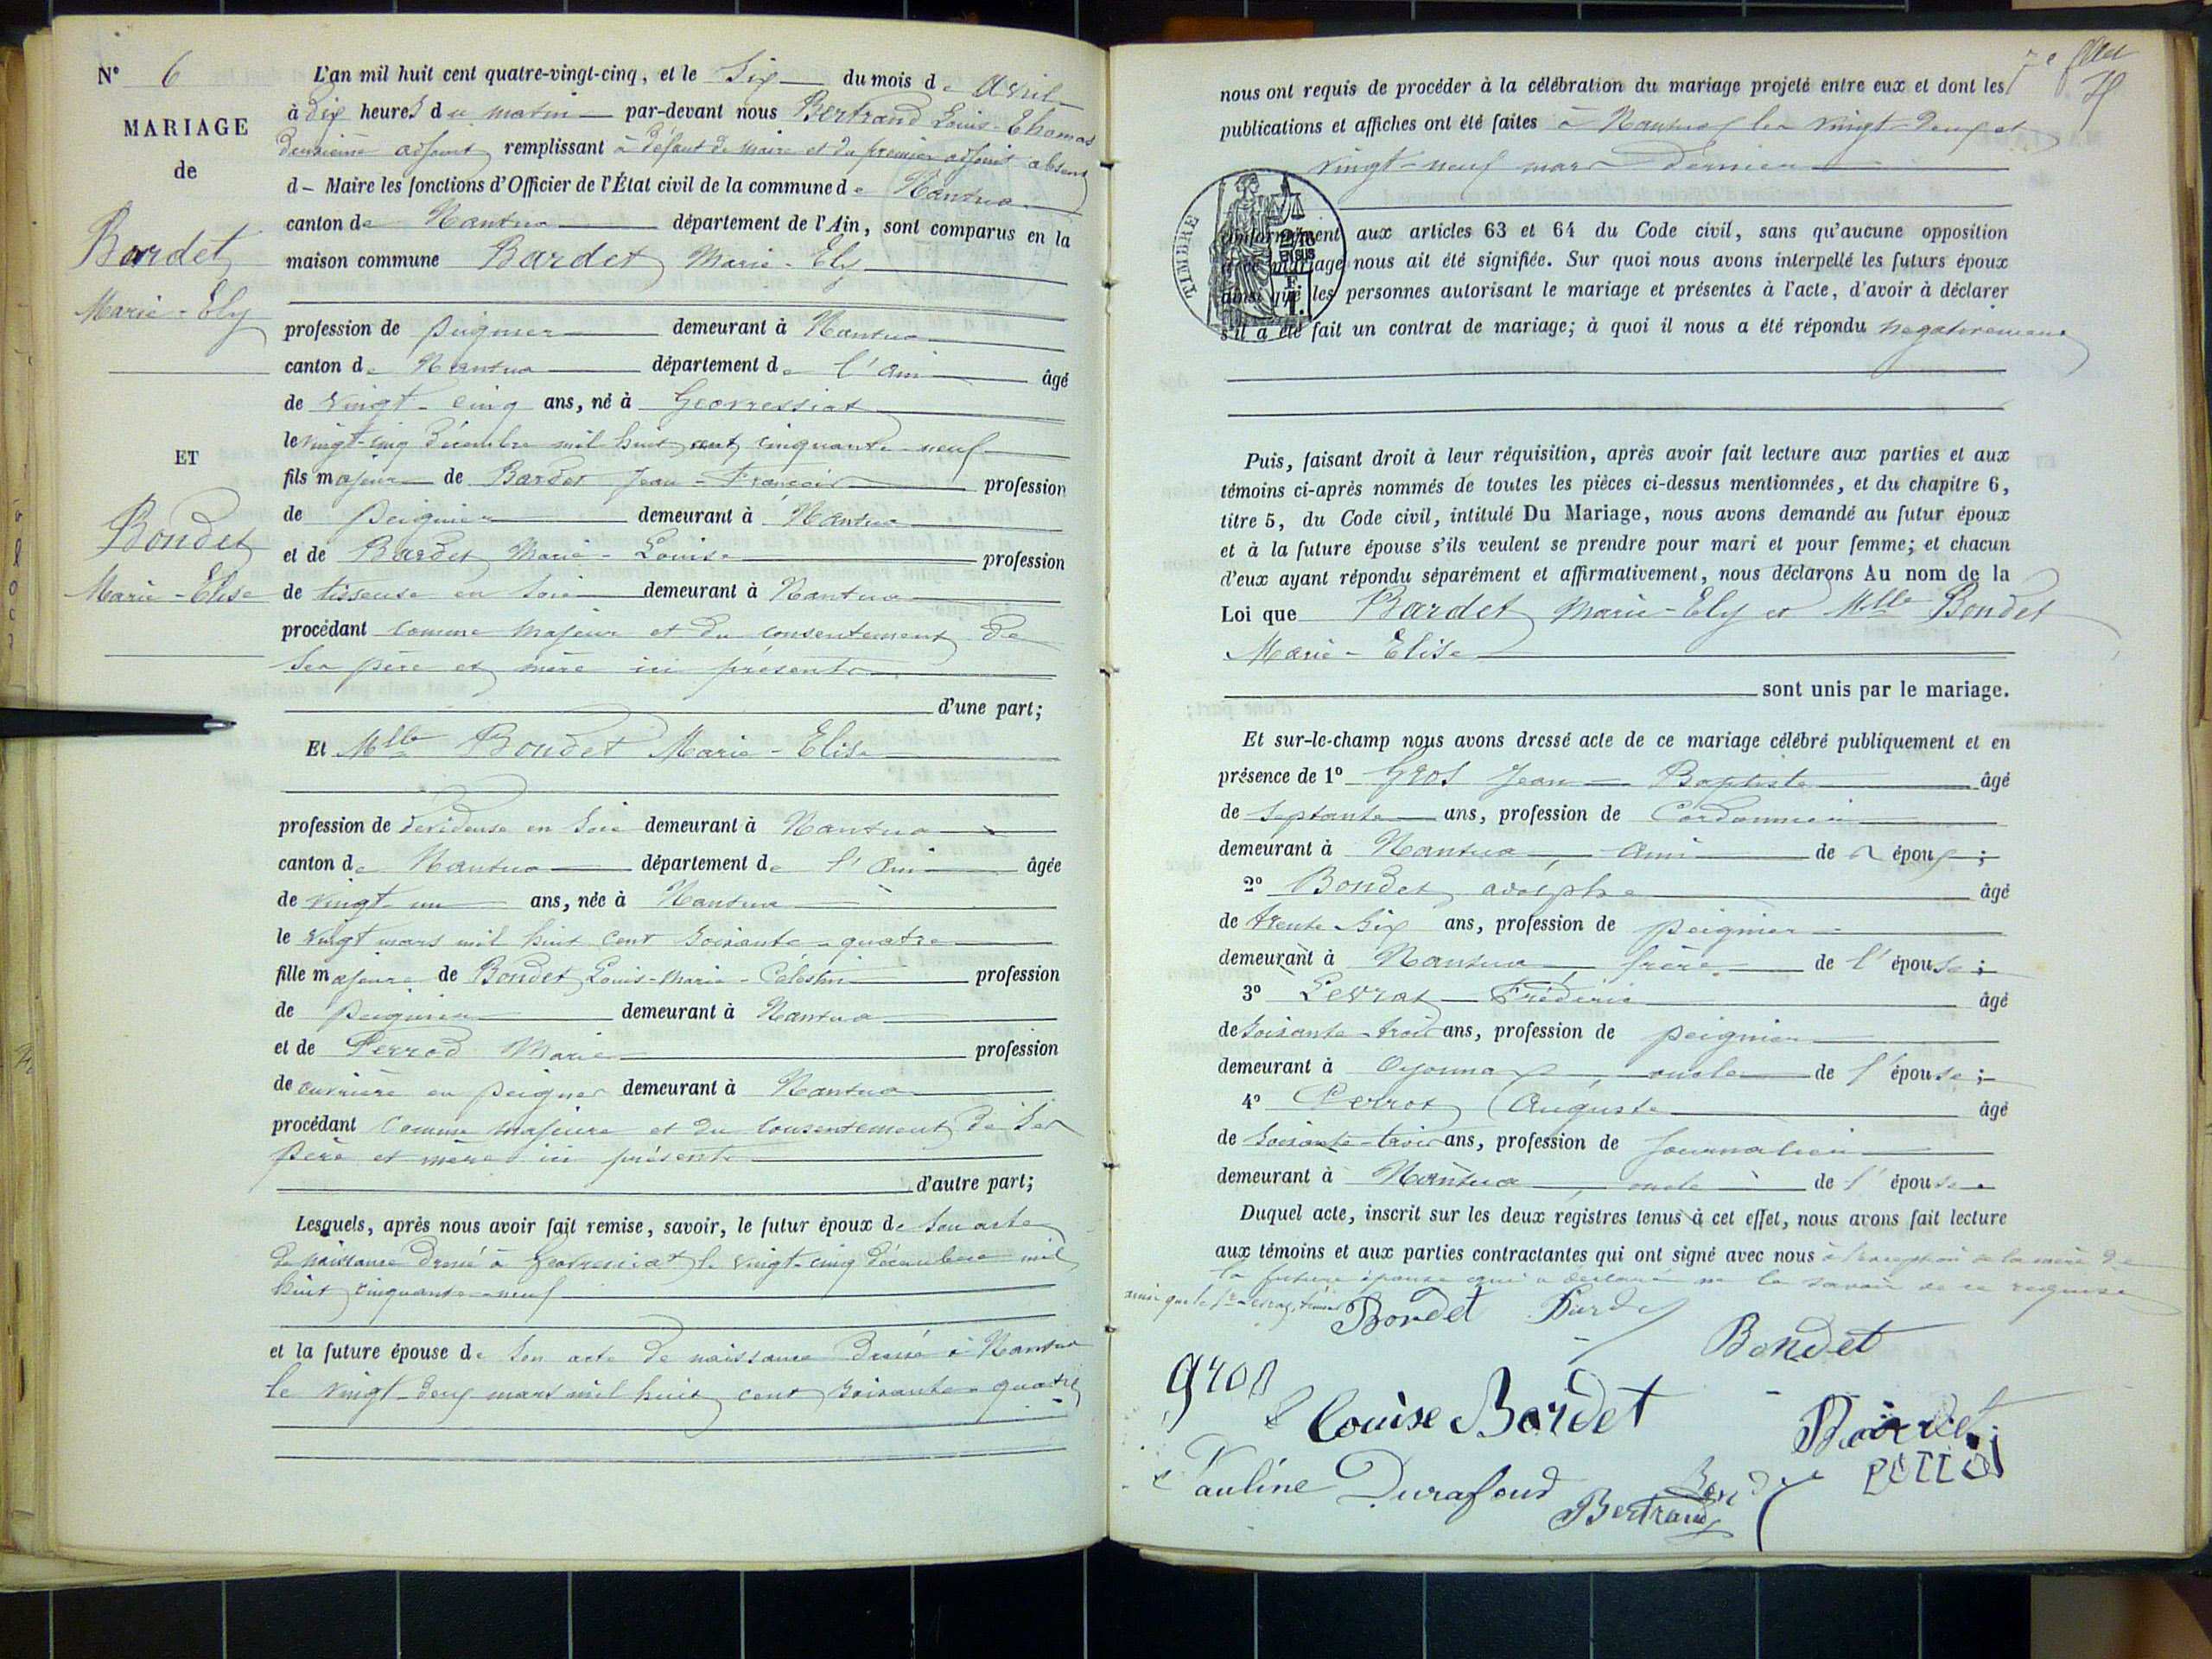 N° 6
MARIAGE
de
Bardet
Marie-Ely
ET
Bondet
Marie-Elise
L'an mil huit cent quatre-vingt-cinq, et le Six du mois de Avril
à dix heures du matin par-devant nous Bertrand Louis-Thomas
deuxième adjoint remplissant à défaut de maire et du premier adjoint absent
d - Maire les fonctions d'Officier de l'État civil de la commune de Nantua
canton de Nantua département de l'Ain, sont comparus en la
maison commune Bardet Marie-Ely
profession de peignier demeurant à Nantua
canton de Nantua département de l'Ain âgé
de vingt-cinq ans, né à Géovressiat
le vingt-cinq décembre mil huit cent cinquante-neuf
fils majeur de Bardet Jean-François profession
de peignier demeurant à Nantua
et de Bardet Marie-Louise profession
de tisseuse en soie demeurant à Nantua
procédant comme majeur et du consentement de
ses père et mère ici présents
d'une part;
Et Mlle Bondet Marie-Elise
profession de dévideuse en soie demeurant à Nantua
canton de Nantua département de l'Ain âgée
de vingt un ans, née à Nantua
le vingt mars mil huit cent soixante-quatre
fille majeure de Bondet Louis-Marie-Célestin profession
de peignier demeurant à Nantua
et de Perrod Marie profession
de ouvrière en peignes demeurant à Nantua
procédant comme majeure et du consentement de ses
père et mère ici présents
d'autre part;
Lesquels, après nous avoir fait remise, savoir, le futur époux de son acte
de naissance dressé à Géovressiat le vingt-cinq décembre mil
huit cinquante-neuf
et la future épouse de son acte de naissance dressé à Nantua
le vingt-deux mars mil huit cent soixante-quatre
7e
nous ont requis de procéder à la célébration du mariage projeté entre eux et dont les
publications et affiches ont été faites à Nantua les vingt-deux et
vingt-neuf mars dernier
TIMBRE
conformément aux articles 63 et 64 du Code civil, sans qu'aucune opposition
à ce mariage nous ait été signifiée. Sur quoi nous avons interpellé les futurs époux
ainsi que les personnes autorisant le mariage et présentes à l'acte, d'avoir à déclarer
s'il a été fait un contrat de mariage; à quoi il nous a été répondu négativement
Puis, faisant droit à leur réquisition, après avoir fait lecture aux parties et aux
témoins ci-après nommés de toutes les pièces ci-dessus mentionnées, et du chapitre 6,
titre 5, du Code civil, intitulé Du Mariage, nous avons demandé au futur époux
et à la future épouse s'ils veulent se prendre pour mari et pour femme; et chacun
d'eux ayant répondu séparément et affirmativement, nous déclarons Au nom de la
Loi que Bardet Marie-Ely et Mlle Bondet
Marie-Elise
sont unis par le mariage.
Et sur-le-champ nous avons dressé acte de ce mariage célébré publiquement et en
présence de 1° Gros Jean-Baptiste âgé
de septante ans, profession de Cordonnier
demeurant à Nantua, ami de époux;
2° Bondet adolphe âgé
de trente six ans, profession de peignier
demeurant à Nantua, frère de l'épouse;
3° Levrat Frédéric âgé
de soixante-trois ans, profession de peignier
demeurant à Oyonnax, oncle de l'épouse;
4° Perrot Auguste âgé
de soixante-trois ans, profession de journalier
demeurant à Nantua, oncle de l'épouse
Duquel acte, inscrit sur les deux registres tenus à cet effet, nous avons fait lecture
aux témoins et aux parties contractantes qui ont signé avec nous à l'exception de la mère de
la future épouse qui a déclaré ne le savoir de ce requise
ainsi que le témoin
Bondet Bardet
Bondet
gros
Louise Bardet
Bardet
perrot
Pauline Durafour
Bondet
Bertrand